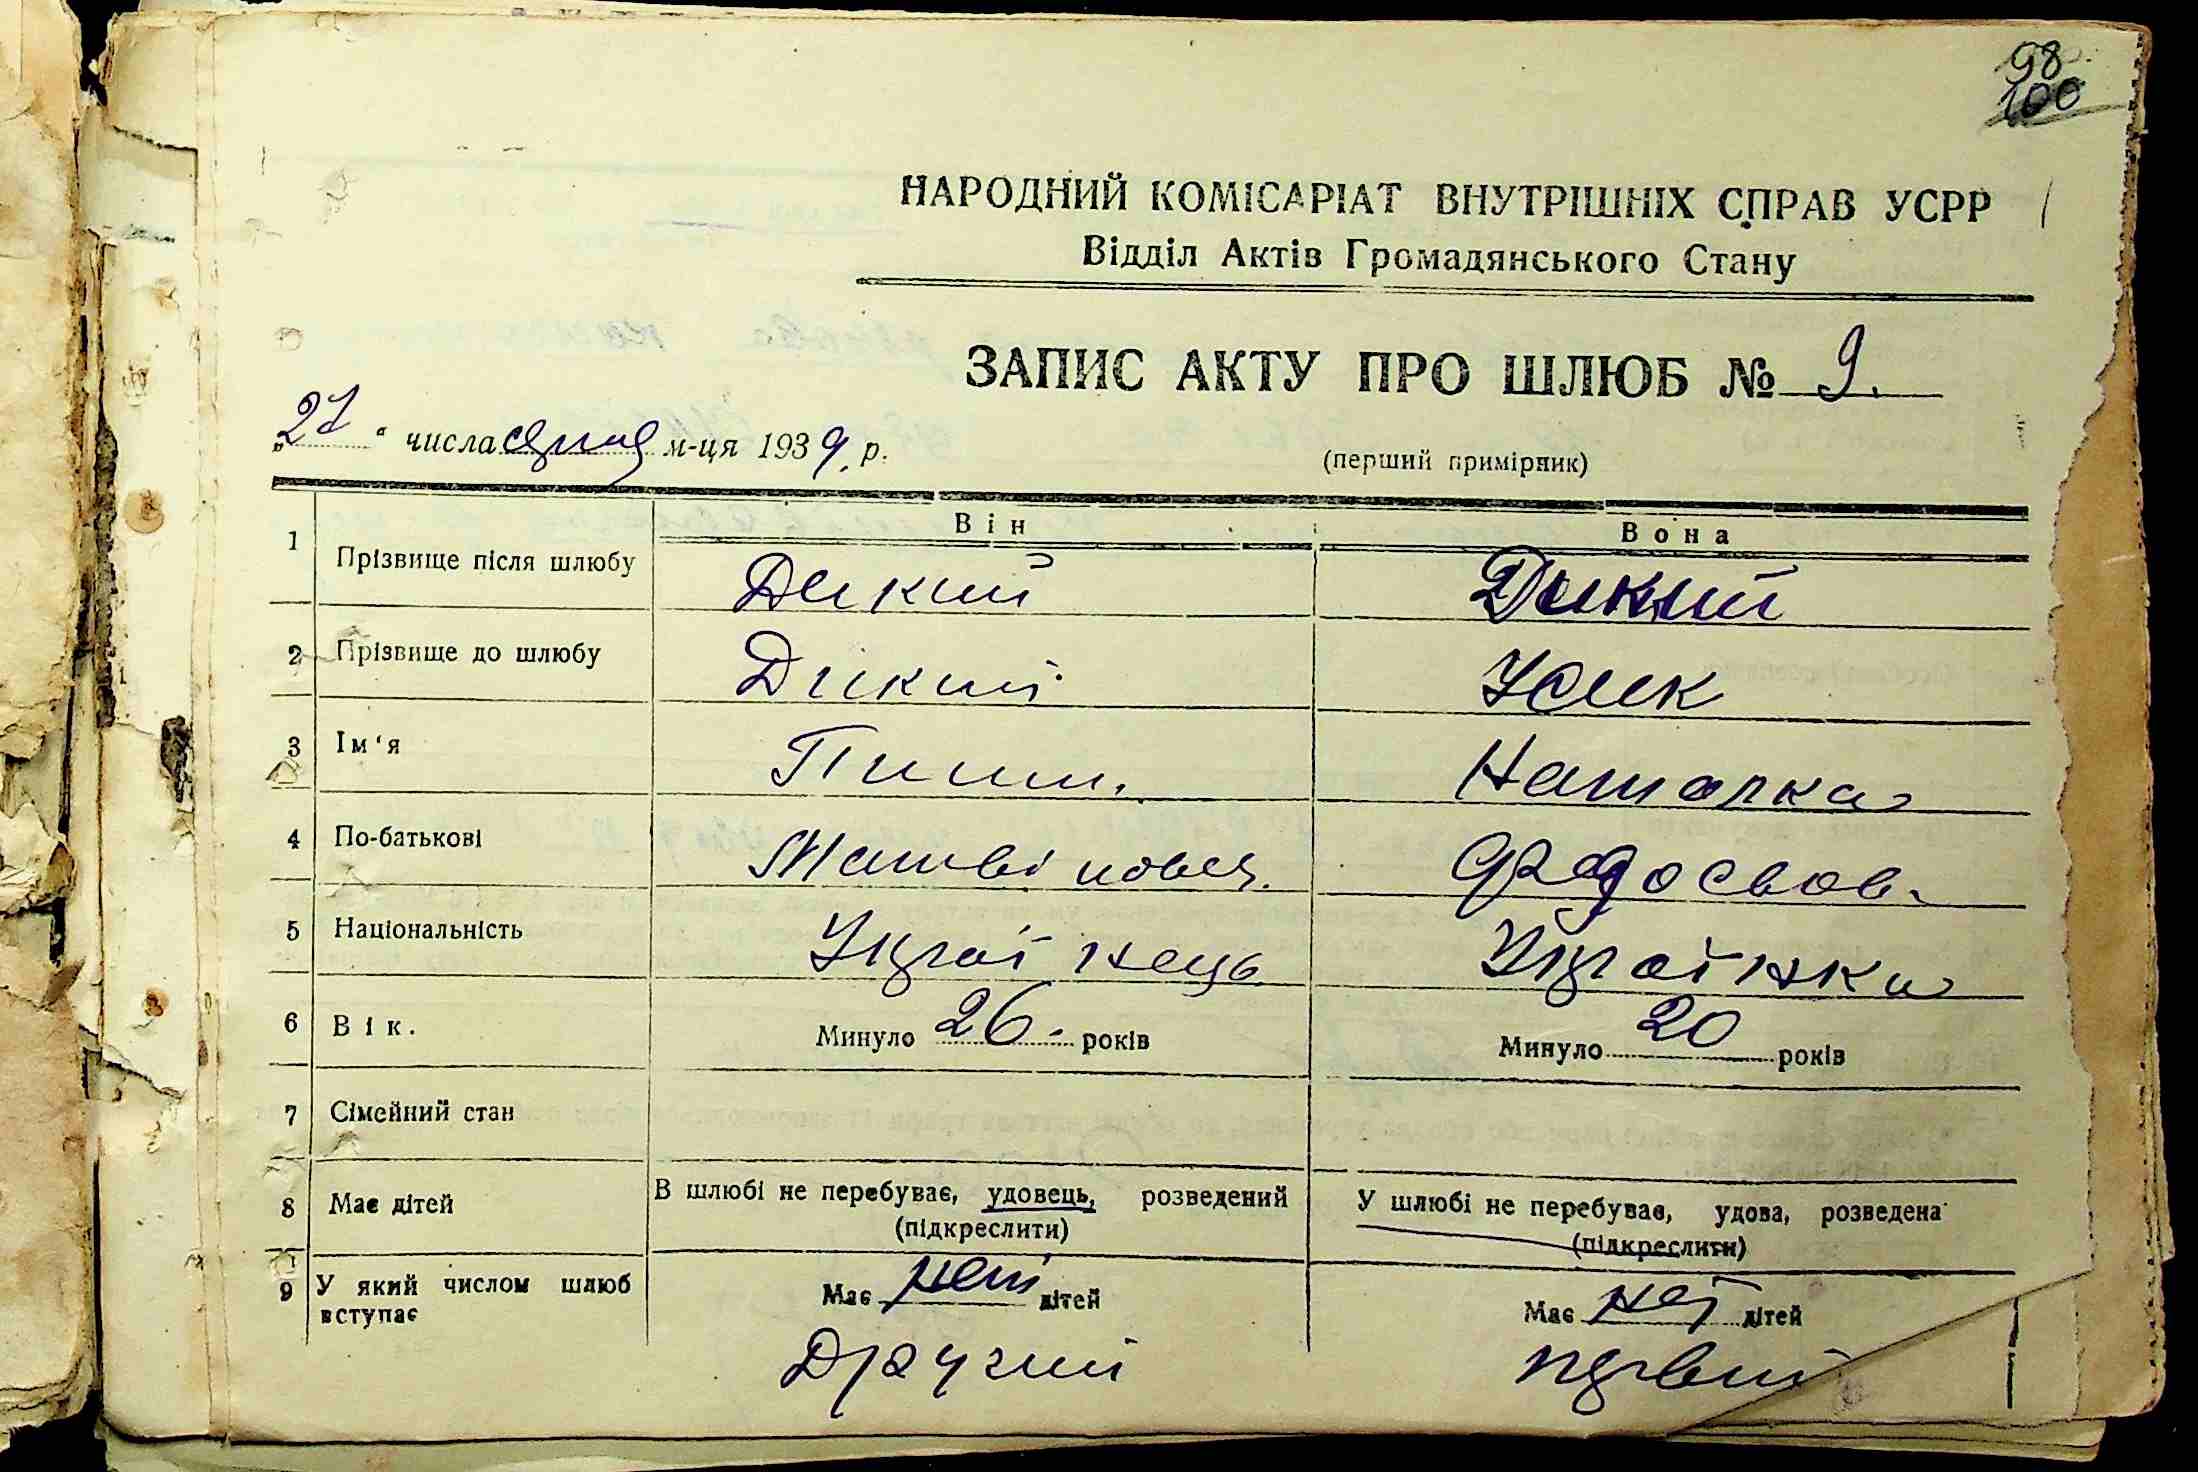 98
100
НАРОДНИЙ КОМІСАРІАТ ВНУТРІШНІХ СПРАВ УСРР
Відділ Актів Громадянського Стану
ЗАПИС АКТУ ПРО ШЛЮБ № 9.
„27“ числа м-ця 1939 р.
(перший примірник)
Він Вона
1 Прізвище після шлюбу Дикий Дикий
2 Прізвище до шлюбу Дикий Усик
3 Ім'я Пилип. Наталка
4 По-батькові Матвійович. Федосьов.
5 Національність Українець Українка
6 Вік. Минуло 26. років Минуло 20 років
7 Сімейний стан
8 Має дітей В шлюбі не перебуває, удовець, розведений (підкреслити) У шлюбі не перебуває, удова, розведена (підкреслити)
9 У який числом шлюб вступає Має дітей Має дітей
Другий первий